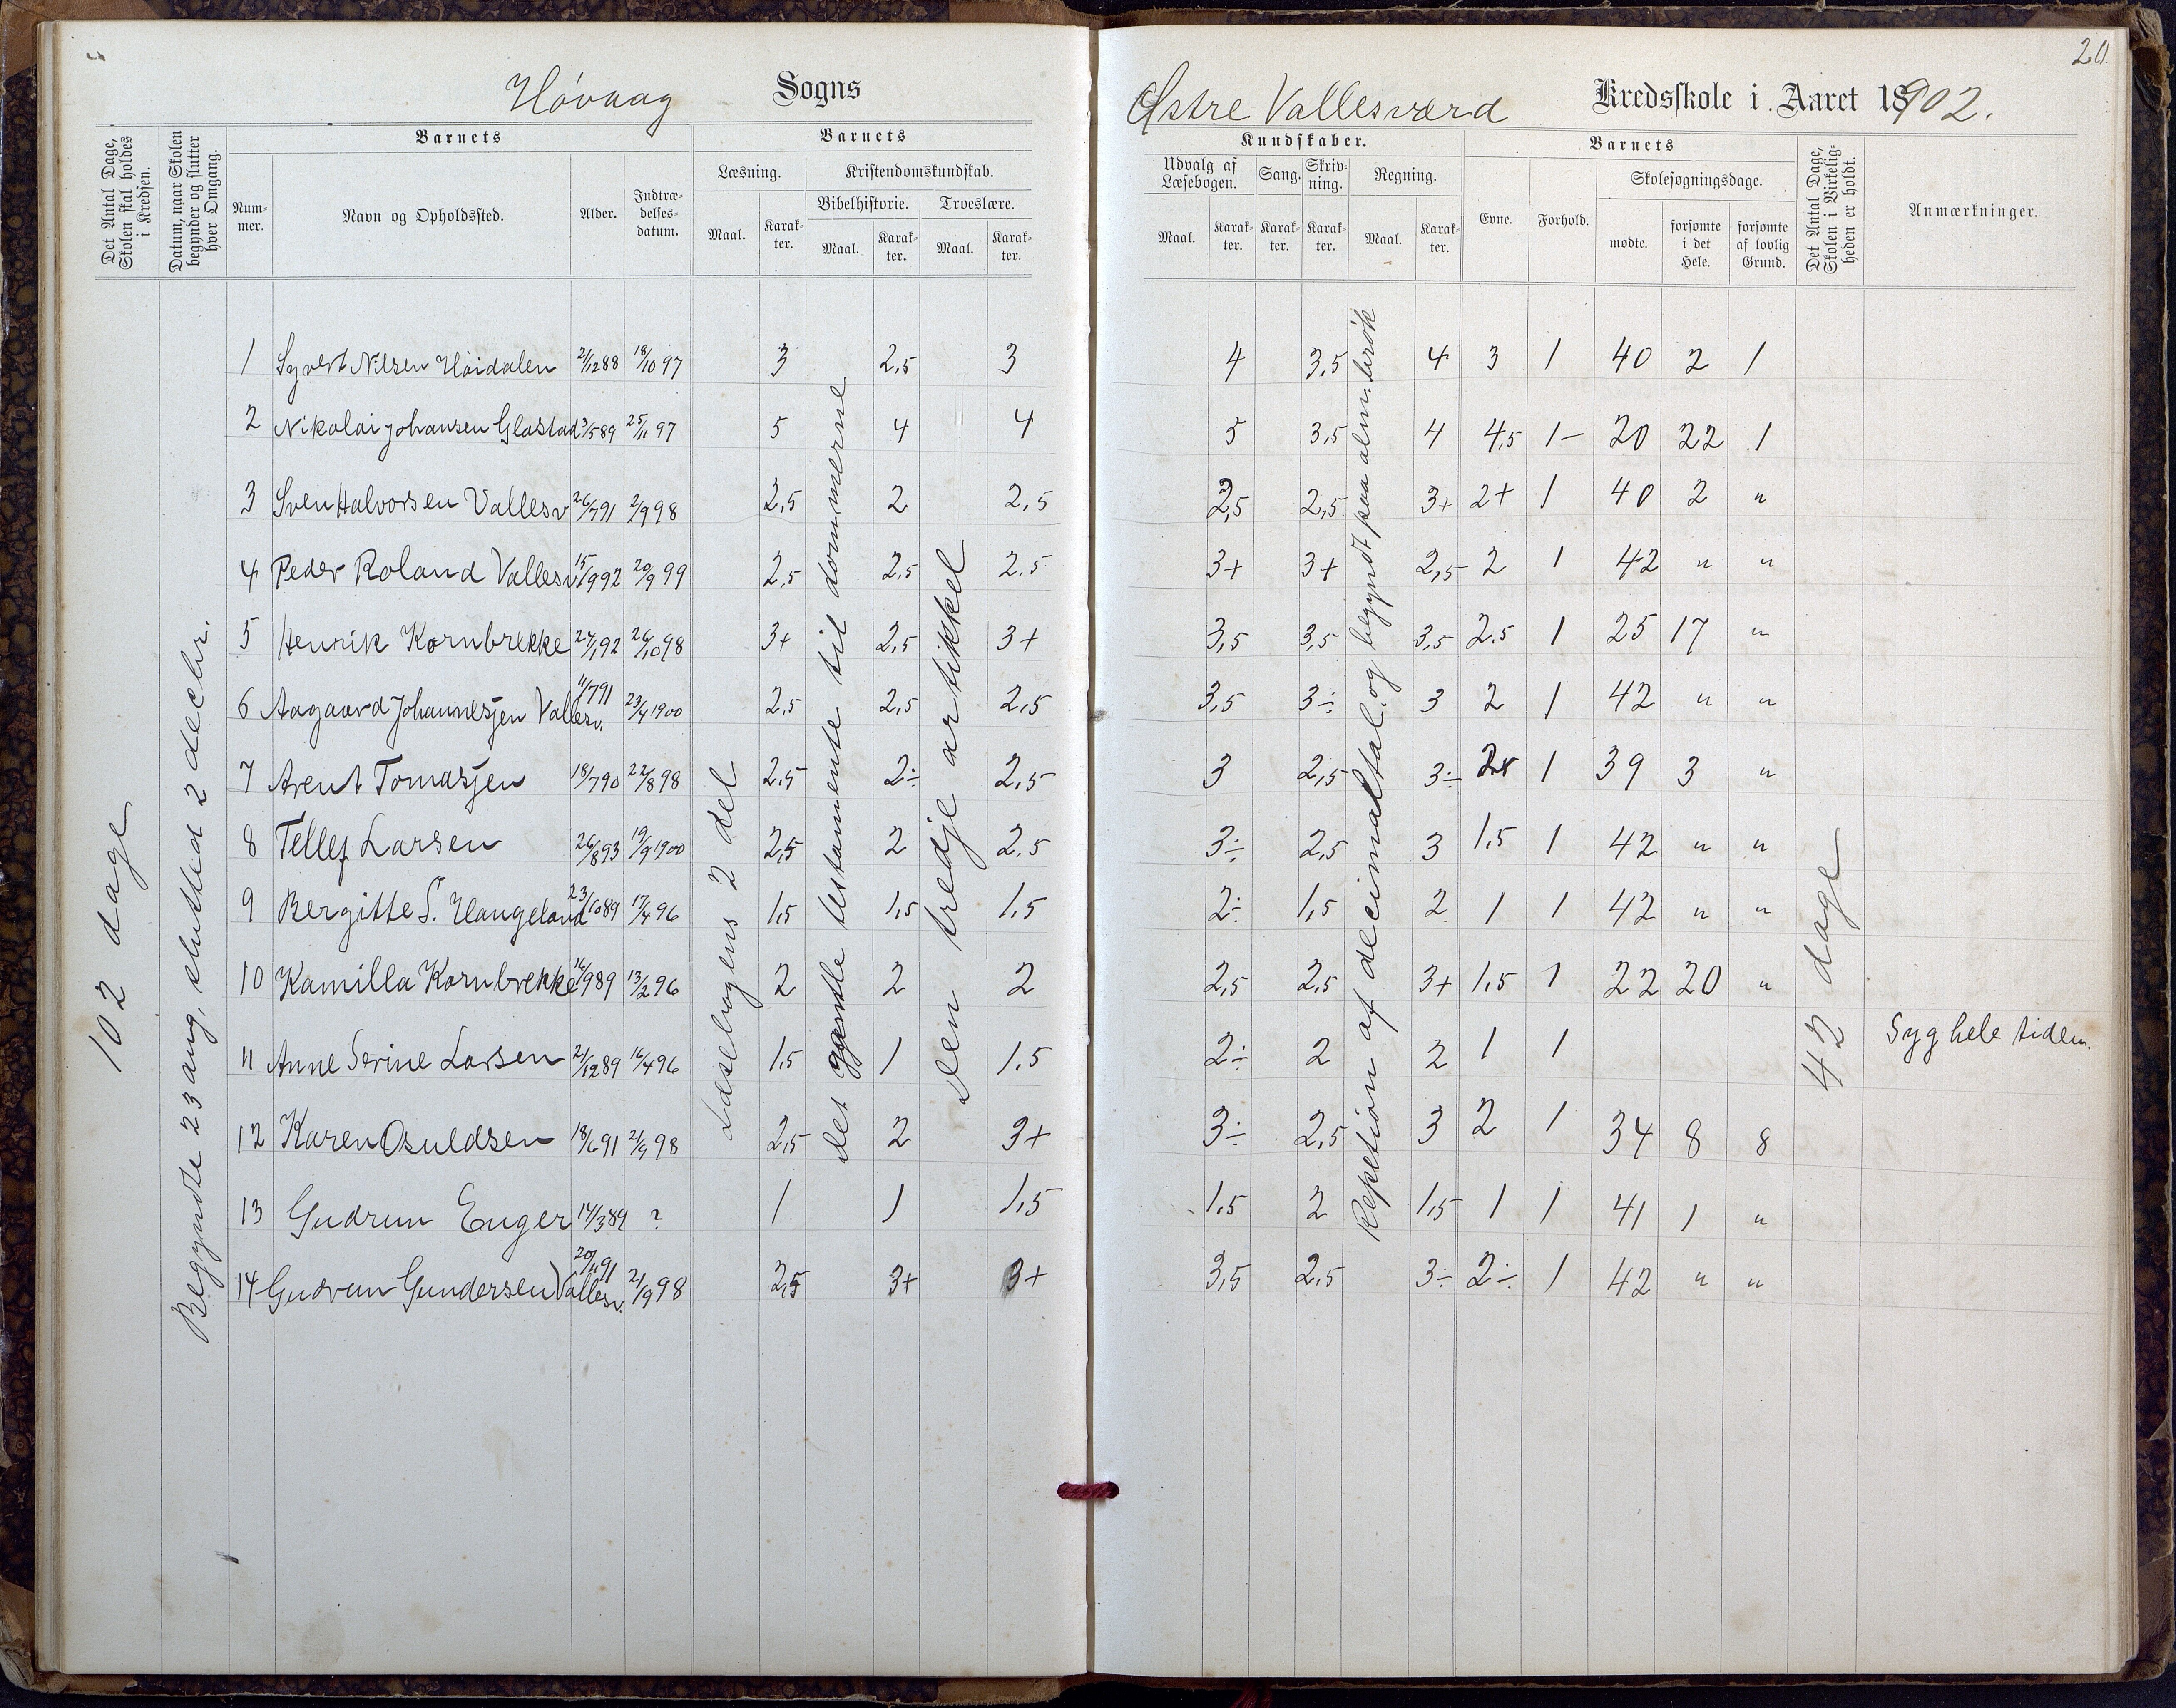 Høvaag Sogns
Det Antal Dage, Skolen skal holdes i Kredsen.
Datum, naar Skolen begynder og slutter hver Omgang.
Barnets
Num-mer.
Navn og Opholdssted.
Alder.
Indtræ-delses-datum.
Barnets
Læsning.
Maal.
Karak-ter.
Kristendomskundskab.
Bibelhistorie.
Maal.
Karak-ter.
Troeslære.
Maal.
Karak-ter.
102 dage
Begyndte 23 aug, slutted 2 decbr.
Læsebogens 2 del
Det gamle testamente til dommerne
Den tredje artikkel
1 Syvert Nilsen Høidalen 21/12 88 18/10 97 3 2,5 3
2 Nikolai Johansen Glastad 3/5 89 25/11 97 5 4 4
3 Sven Halvorsen Vallesv 26/7 91 2/9 98 2,5 2 2,5
4 Peder Roland Vallesv 15/9 92 20/9 99 2,5 2,5 2.5
5 Henrik Kornbrekke 24/1 92 26/10 98 3+ 2,5 3+
6 Aagaard Johannesjen Vallesv. 11/7 91 23/4 1900 2,5 2,5 2,5
7 Arent Tomasjen 18/7 90 22/8 98 2,5 2÷ 2,5
8 Tellef Larsen 26/8 93 19/9 1900 2,5 2 2.5
9 Bergitte S. Haugeland 23/10 89 17/4 96 1,5 1,5 1,5
10 Kamilla Kornbrekke 16/9 89 13/2 96 2 2 2
11 Anne Serine Larsen 21/12 89 16/4 96 1,5 1 1,5
12 Karen Osuldsen 18/6 91 21/9 98 2,5 2 3+
13 Gudrun Enger 14/3 89 ? 1 1 1,5
14 Gudrun Gundersen Vallesv. 20/11 91 21/9 98 2,5 3+ 3+
20
Østre Vallesværd Kredsskole i Aaret 1902.
Kundskaber.
Udvalg af Læsebogen.
Maal.
Karak-ter.
Sang.
Karak-ter.
Skriv-ning.
Karak-ter.
Regning.
Maal.
Karak-ter.
Barnets
Evne.
Forhold.
Skolesøgningsdage.
mødte.
forsømte i det Hele.
forsømte af lovlig Grund.
Det Antal Dage, Skolen i Virkelig-heden er holdt.
Anmærkninger.
Repetion af decimaltal. og begyndt paa alm. brøk
42 dage
4 3,5 4 3 1 40 2 1
5 3,5 4 4,5 1- 20 22 1
2,5 2,5 3+ 2+ 1 40 2 "
3+ 3+ 2,5 2 1 42 " "
3,5 3,5 3,5 2.5 1 25 17 "
3,5 3÷ 3 2 1 42 " "
3 2,5 3÷ 1 39 3 "
3÷ 2,5 3 1,5 1 42 " "
2÷ 1,5 2 1 1 42 " "
2,5 2,5 3+ 1,5 1 22 20 "
2÷ 2 2 1 1 Syg hele tiden.
3÷ 2,5 3 2 1 34 8 8
1,5 2 1,5 1 1 41 1 "
3,5 2,5 3÷ 2÷ 1 42 " "